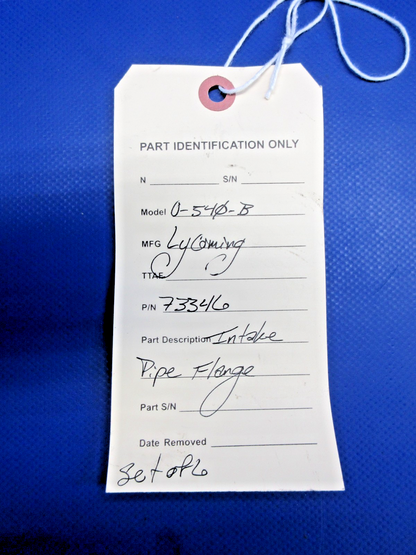 PART IDENTIFICATION ONLY
N S/N
Model O-540-B
MFG Lycoming
TTAE
P/N 73346
Part Description Intake
Pipe Flange
Part S/N
Date Removed
Set of 6